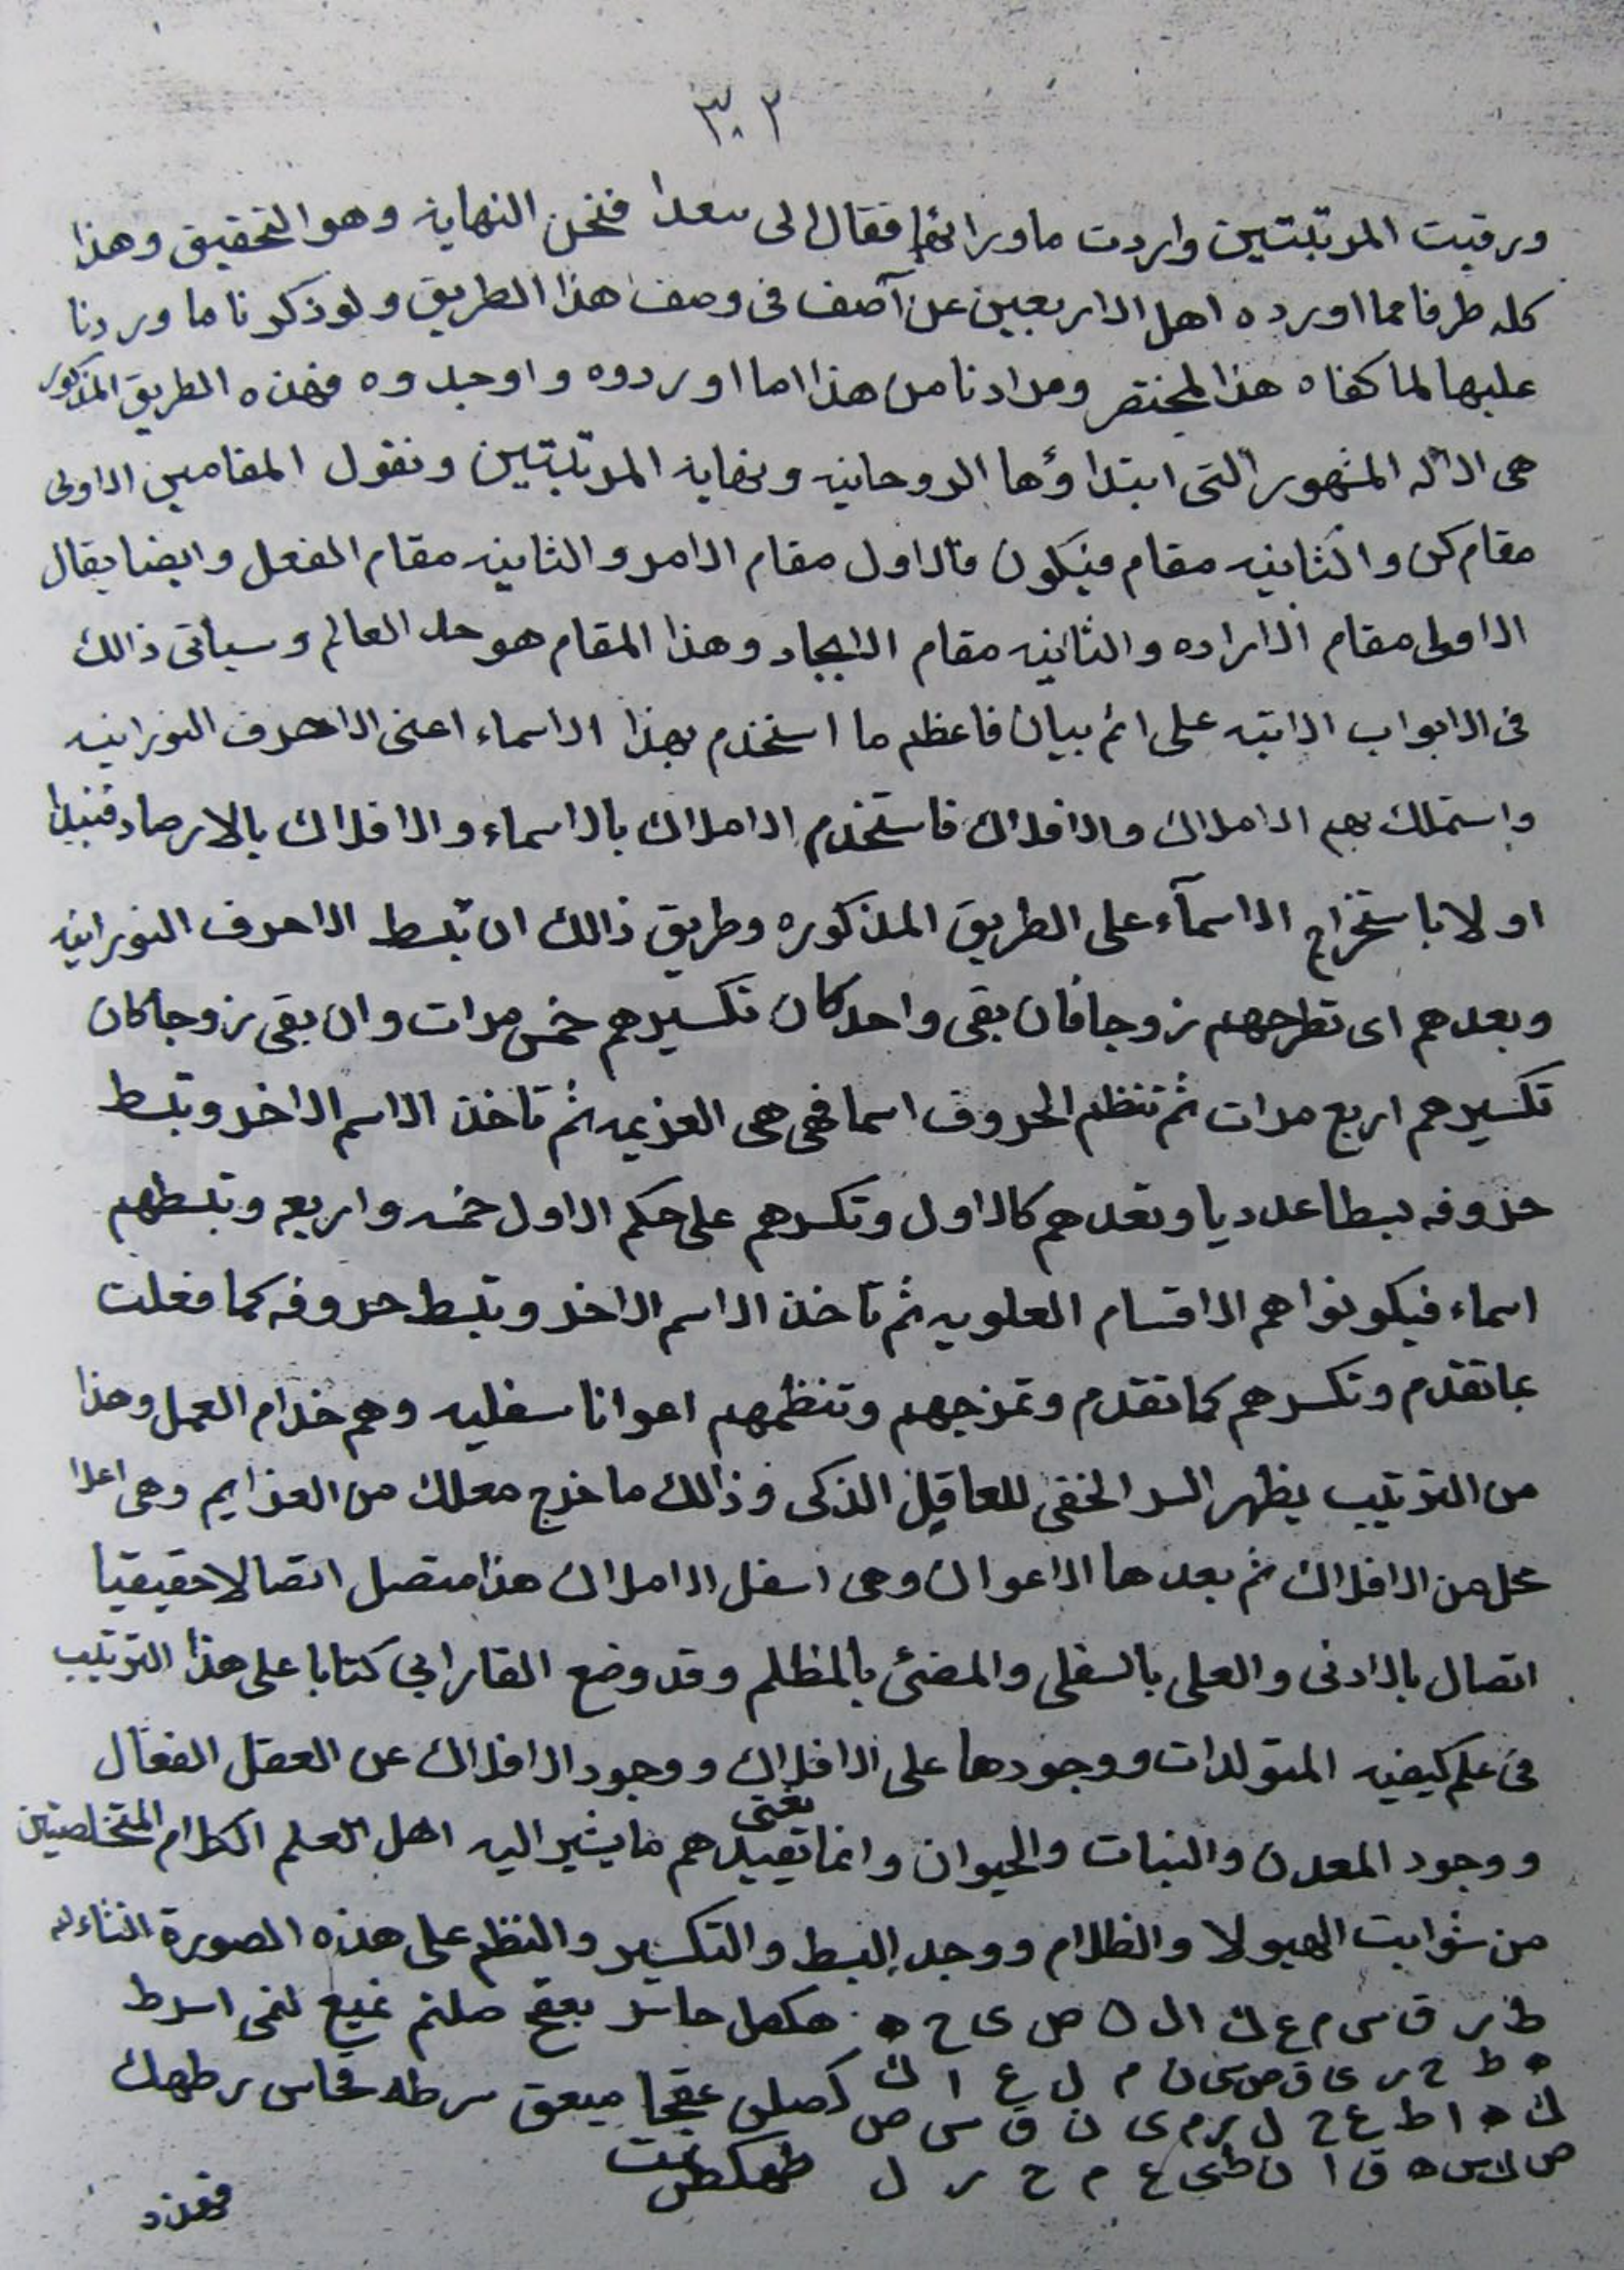 ٣٠٢
ورقيت المرتبتين واردت ما ورائها فقال لى سعدا فنحن النهايه وهو التحقيق وهذا
كله طرفا مما اورده اهل الاربعين عن آصف فى وصف هذا الطريق ولو ذكرنا ما وردنا
عليها لما كفاه هذا المختصر ومرادنا من هذا اما اوردوه واوجدوه فهذه الطريق المذكور
هى الاله المشهور التى ابتداؤها الروحانيه ونهايه المرتبتين ونقول المقامين الاولى
مقام كن والثانيه مقام فيكون فالاول مقام الامر والثانيه مقام الفعل وايضا يقال
الاولى مقام الاراده والثانيه مقام الايجاد وهذا المقام هو حد العالم وسياتى ذالك
فى الابواب الاتيه على اتم بيان فاعظم ما استخدم بهذا الاسماء اعنى الاحرف النورانيه
واستملك بهم الاملاك والافلاك فاستخدم الاملاك بالاسماء والافلاك بالارصاد فنبدا
اولا باستخراج الاسمآء على الطريق المذكوره وطريق ذالك ان تبسط الاحرف النورانيه
وبعدهم اى تطرحهم زوجا فان بقى واحد كان تكسيرهم خمس مرات وان بقى زوجا كان
تكسيرهم اربع مرات ثم تنظم الحروف اسما فهى هى العزيمه ثم تاخذ الاسم الاخر وتبسط
حروفه بسطا عدديا وتعدهم كالاول وتكسرهم على حكم الاول خمسه واربعه وتبسطهم
اسماء فيكونوا هم الاقسام العلويه ثم تاخذ الاسم الاخر وتبسط حروفه كما فعلت
بما تقدم وتكسرهم كما تقدم وتمزجهم وتنظمهم اعوانا سفليه وهم خدام العمل وهذا
من الترتيب يظهر السر الخفى للعاقل الذكى وذالك ما خرج معك من العزايم وهى اعلا
محل من الافلاك ثم بعدها الاعوان وهى اسفل الاملاك هذا متصل اتصالا حقيقيا
اتصال بالادنى والعلى بالسفلى والمضئ بالمظلم وقد وضع الفارابي كتابا على هذا الترتيب
فى علم كيفيه المتولدات ووجودها على الافلاك ووجود الافلاك عن العقل الفعال
ووجود المعدن والنبات والحيوان وانما تقيدهم يعنى ما يشير اليه اهل العلم الكرام
من شوايب الهيولا والظلام ووجد البسط والتكسير والنظم على هذه الصورة
ط ر ق س م ع ك ا ل ن ص ى ح ه هكهل حاسر بعقح صلنم
ه ط ح ر ى ق ص س ن م ل ع ا ك كصلى عقجا ميعق سرطه
ك ه ا ط ع ح ل ر م ى ن ق س ص
ص ك س ه ق ا ن ط ى ع م ح ر ل طهكطس تمت